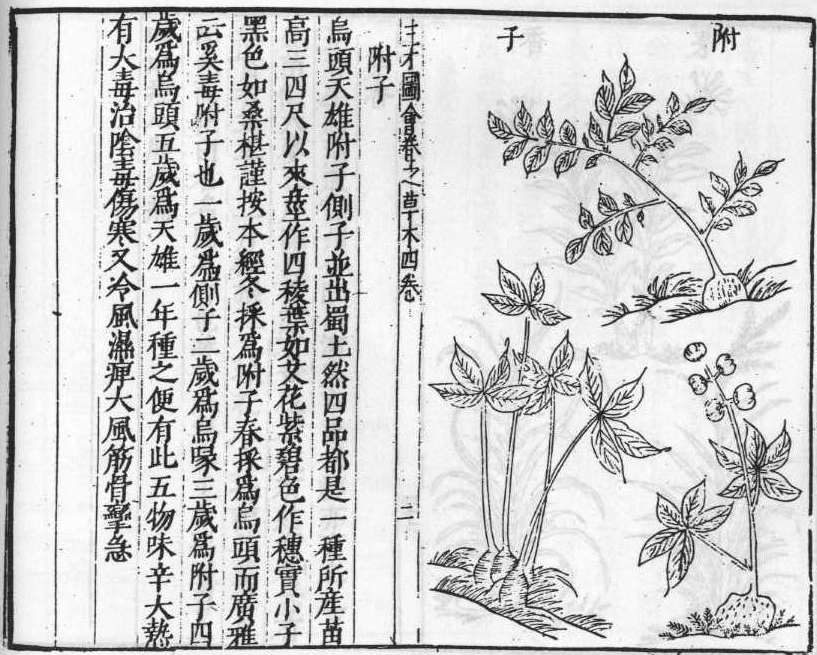 附子
三才圖會卷之八草木四卷 二
附子
烏頭天雄附子側子並出蜀土然四品都是種所産苗
高三四尺以來莖作四稜葉如艾花紫碧色作穗實小子
黑色如桑椹謹按本經冬採爲附子春採爲烏頭而廣雅
云奚毒附子也一歲爲側子二歲爲烏喙三歲爲附子四
歲爲烏頭五歲爲天雄一年種之便有此五物味辛大熱
有大毒治陰毒傷寒又冷風濕痺大風筋骨攣急